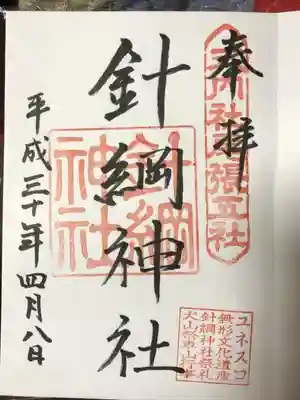 奉拝
針綱神社
平成三十年四月八日
針綱
神社
尾張五社
ユネスコ
無形文化遺産
針綱神社祭礼
犬山祭車山行事